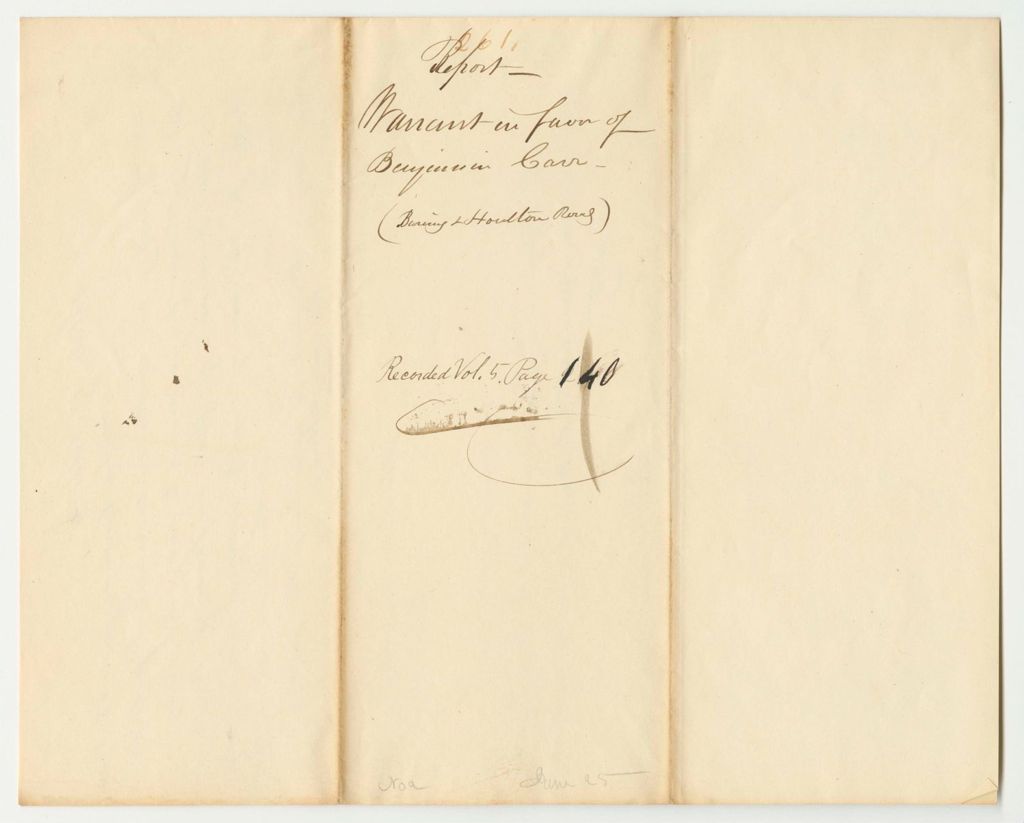 261.
Report
Warrant in favor of
Benjamin Carr
(Baring & Houlton Road)
Recorded Vol. 5. Page 140
No 2 June 25